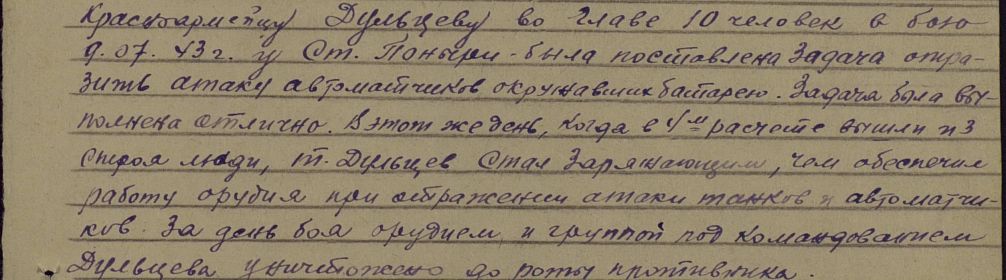 Красноармейцу Дульцеву во главе 10 человек в бою
9.07.43г. у Ст. Поныри была поставлена Задача отра-
зить атаку автоматчиков окружавших батарею. Задача была вы-
полнена отлично. В этот же день, когда в 4м расчете вышли из
строя люди, т. Дульцев Стал Заряжающим, чем обеспечил
работу орудия при отражении атаки танков и автоматчи-
ков. За день боя орудием и группой под командованием
Дульцева уничтожено до роты противника.